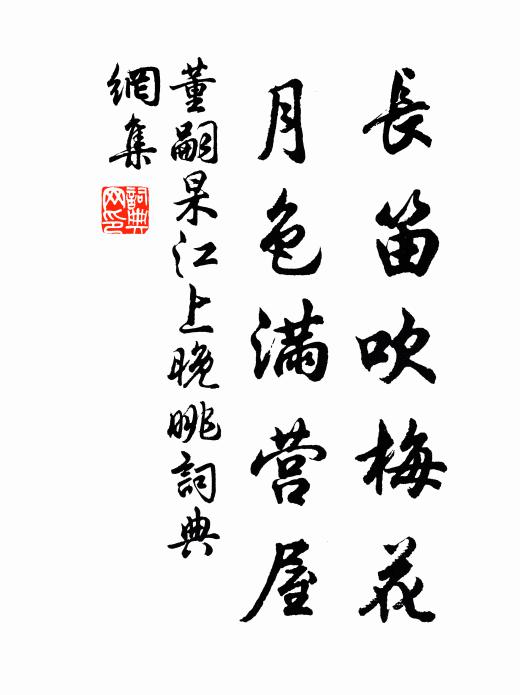 長笛吹梅花
月色滿营屋
董嗣杲江上晚眺詞典
網集
詞典网印